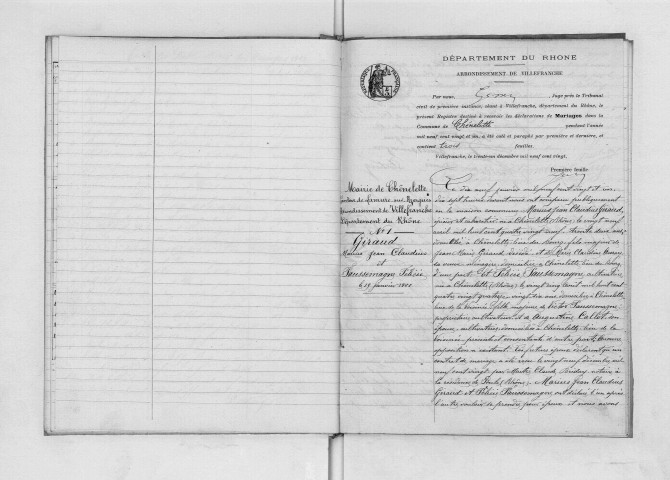 DÉPARTEMENT DU RHONE
ARRONDISSEMENT DE VILLEFRANCHE
Par nous, Juge près le Tribunal
civil de première instance, séant à Villefranche, département du Rhône, le
présent Registre destiné à recevoir les déclarations de Mariages dans la
Commune de Chênelette pendant l'année
mil neuf cent vingt et un, a été coté et paraphé par première et dernière, et
contient trois feuilles.
Villefranche, le trente-un décembre mil neuf cent vingt.
Première feuille
Mairie de Chênelette
canton de Lamure sur Azergues
arrondissement de Villefranche
Département du Rhône
N° 1
Giraud
Marius Jean Claudius
et
Sanssemagne Félicie
le 19 janvier
Le dix neuf janvier mil neuf cent vingt et un,
dix sept heures devant nous ont comparu publiquement
en la maison commune Marius Jean Claudius Giraud,
né à Chênelette (Rhône) le vingt neuf
avril mil huit cent quatre vingt neuf, trente deux ans
domicilié à Chênelette, lieu du Bourg, fils majeur de
Jean Marie Giraud décédé et de Marie Claudine
sa veuve ménagère, domiciliée à Chênelette lieu du Bourg
d'une part; et Félicie Sanssemagne, cultivatrice,
née à Chênelette (Rhône) le vingt cinq avril mil huit cent
quatre vingt quatorze, vingt six ans domiciliée à Chênelette,
lieu de la fille majeure de Victor Sanssemagne
propriétaire cultivateur et de Augustine Callot, son
épouse, cultivateurs, domiciliés à Chênelette, lieu de la
présents et consentants d'autre part; Aucune
opposition n'existant. Les futurs époux déclarent qu'un
contrat de mariage a été reçu le vingt neuf décembre mil
neuf cent vingt par Maître Claude notaire à
la résidence de Poule (Rhône); Marius Jean Claudius
Giraud et Félicie Sanssemagne ont déclaré l'un après
l'autre vouloir se prendre pour époux et nous avons